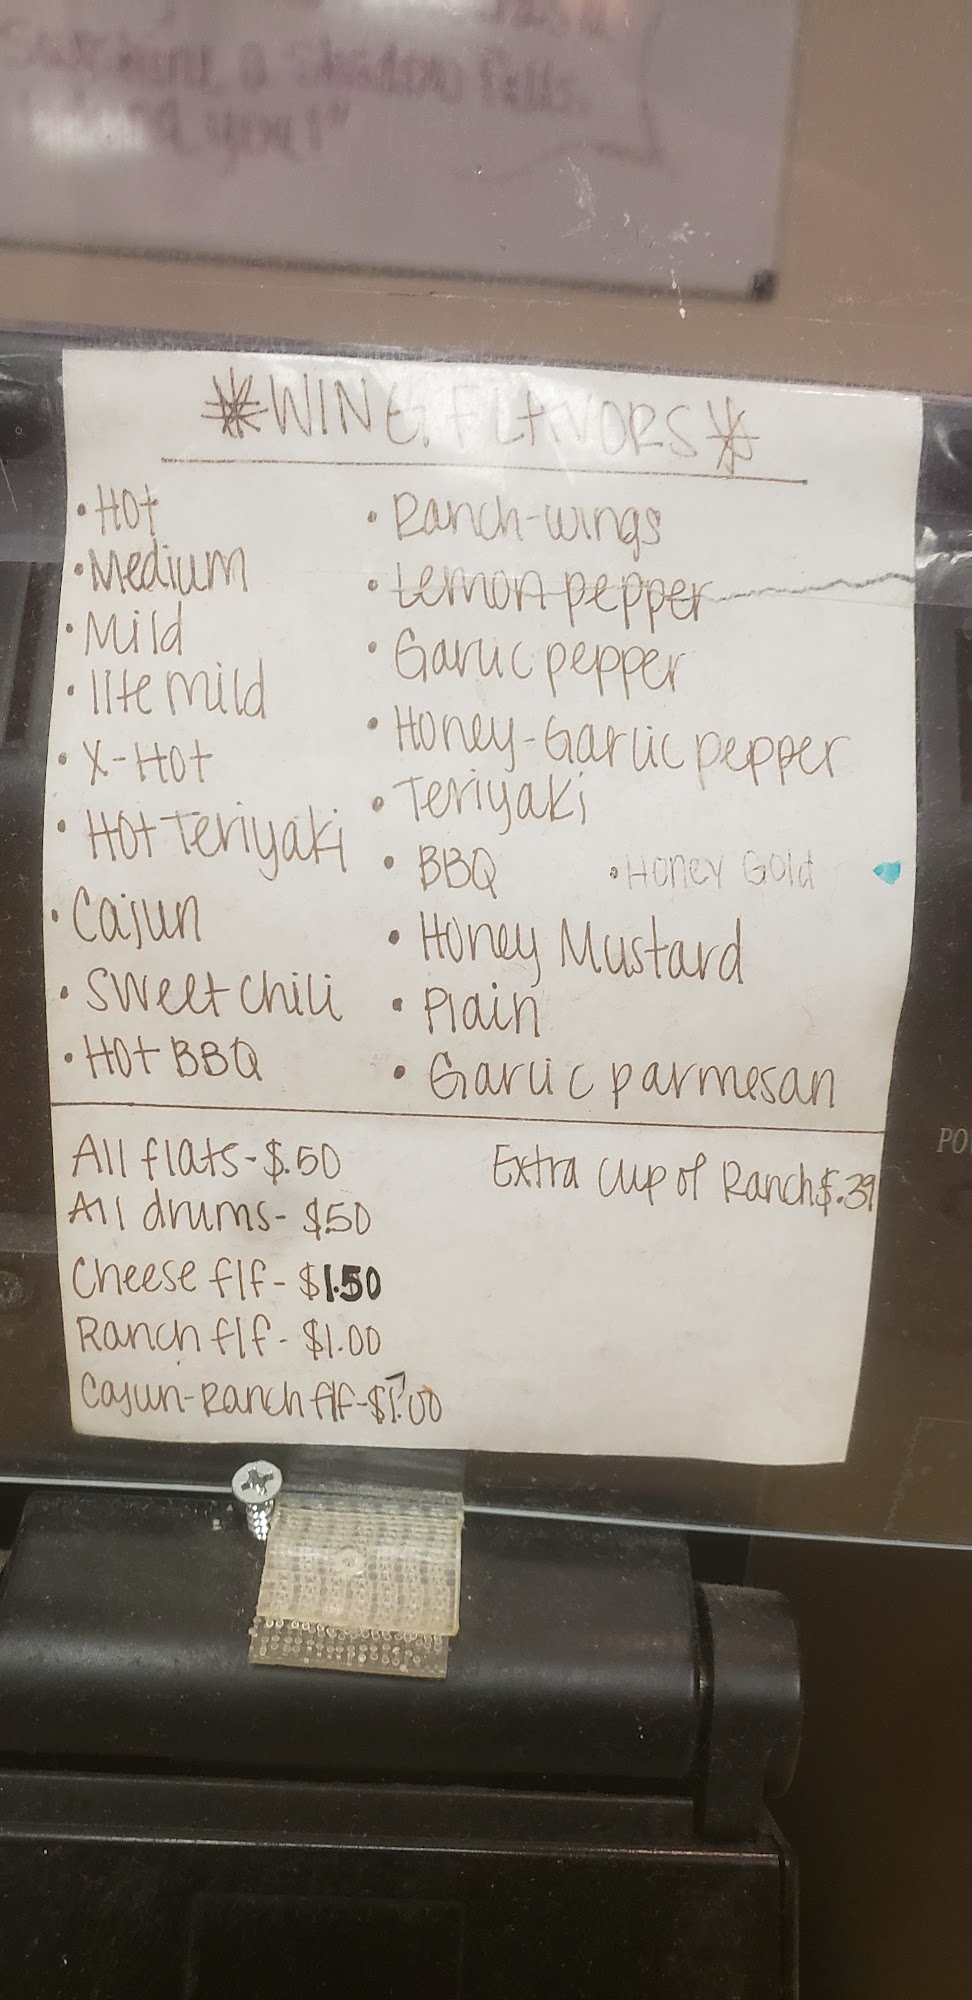 a Shadow Falls
you!"
WING FLAVORS
• Hot
• Medium
• Mild
• lite mild
• X-Hot
• Hot Teriyaki
• Cajun
• Sweet chili
• Hot BBQ
• Ranch-wings
• Lemon pepper
• Garlic pepper
• Honey-Garlic pepper
• Teriyaki
• BBQ
• Honey Gold
• Honey Mustard
• Plain
• Garlic parmesan
All flats-$.50
All drums- $.50
Cheese f/f- $1.50
Ranch f/f- $1.00
Cajun-Ranch f/f-$1.00
Extra cup of Ranch $.39
PO